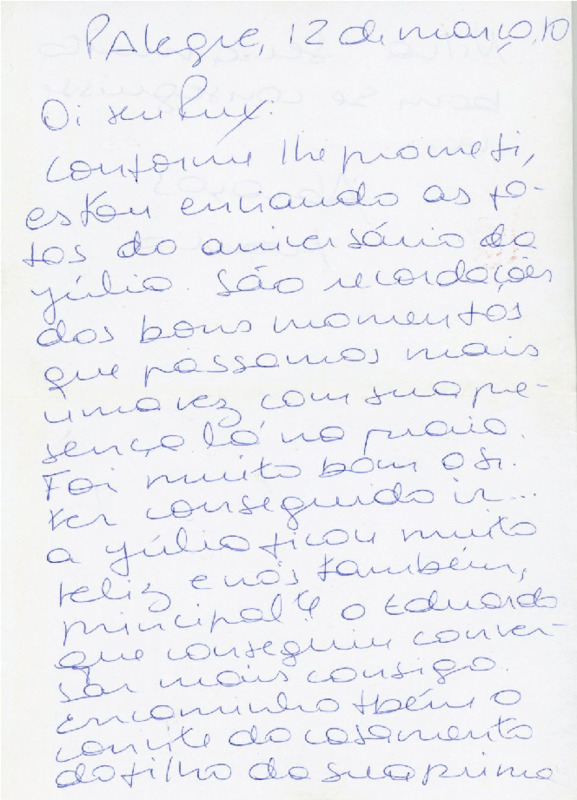 P Alegre, 12 de março, 10
Oi seu Rux:
Conforme lhe prometi,
estou enviando as fo-
tos do aniversário da
Júlia. São recordações
dos bons momentos
que passamos mais
uma vez com sua pre-
sença lá na praia.
Foi muito bom o sr.
ter conseguido ir...
a Júlia ficou muito
feliz e nós também,
principal/e o Eduardo
que conseguiu conver-
sar mais consigo.
Encaminho tbém o
convite do casamento
do filho da sua prima